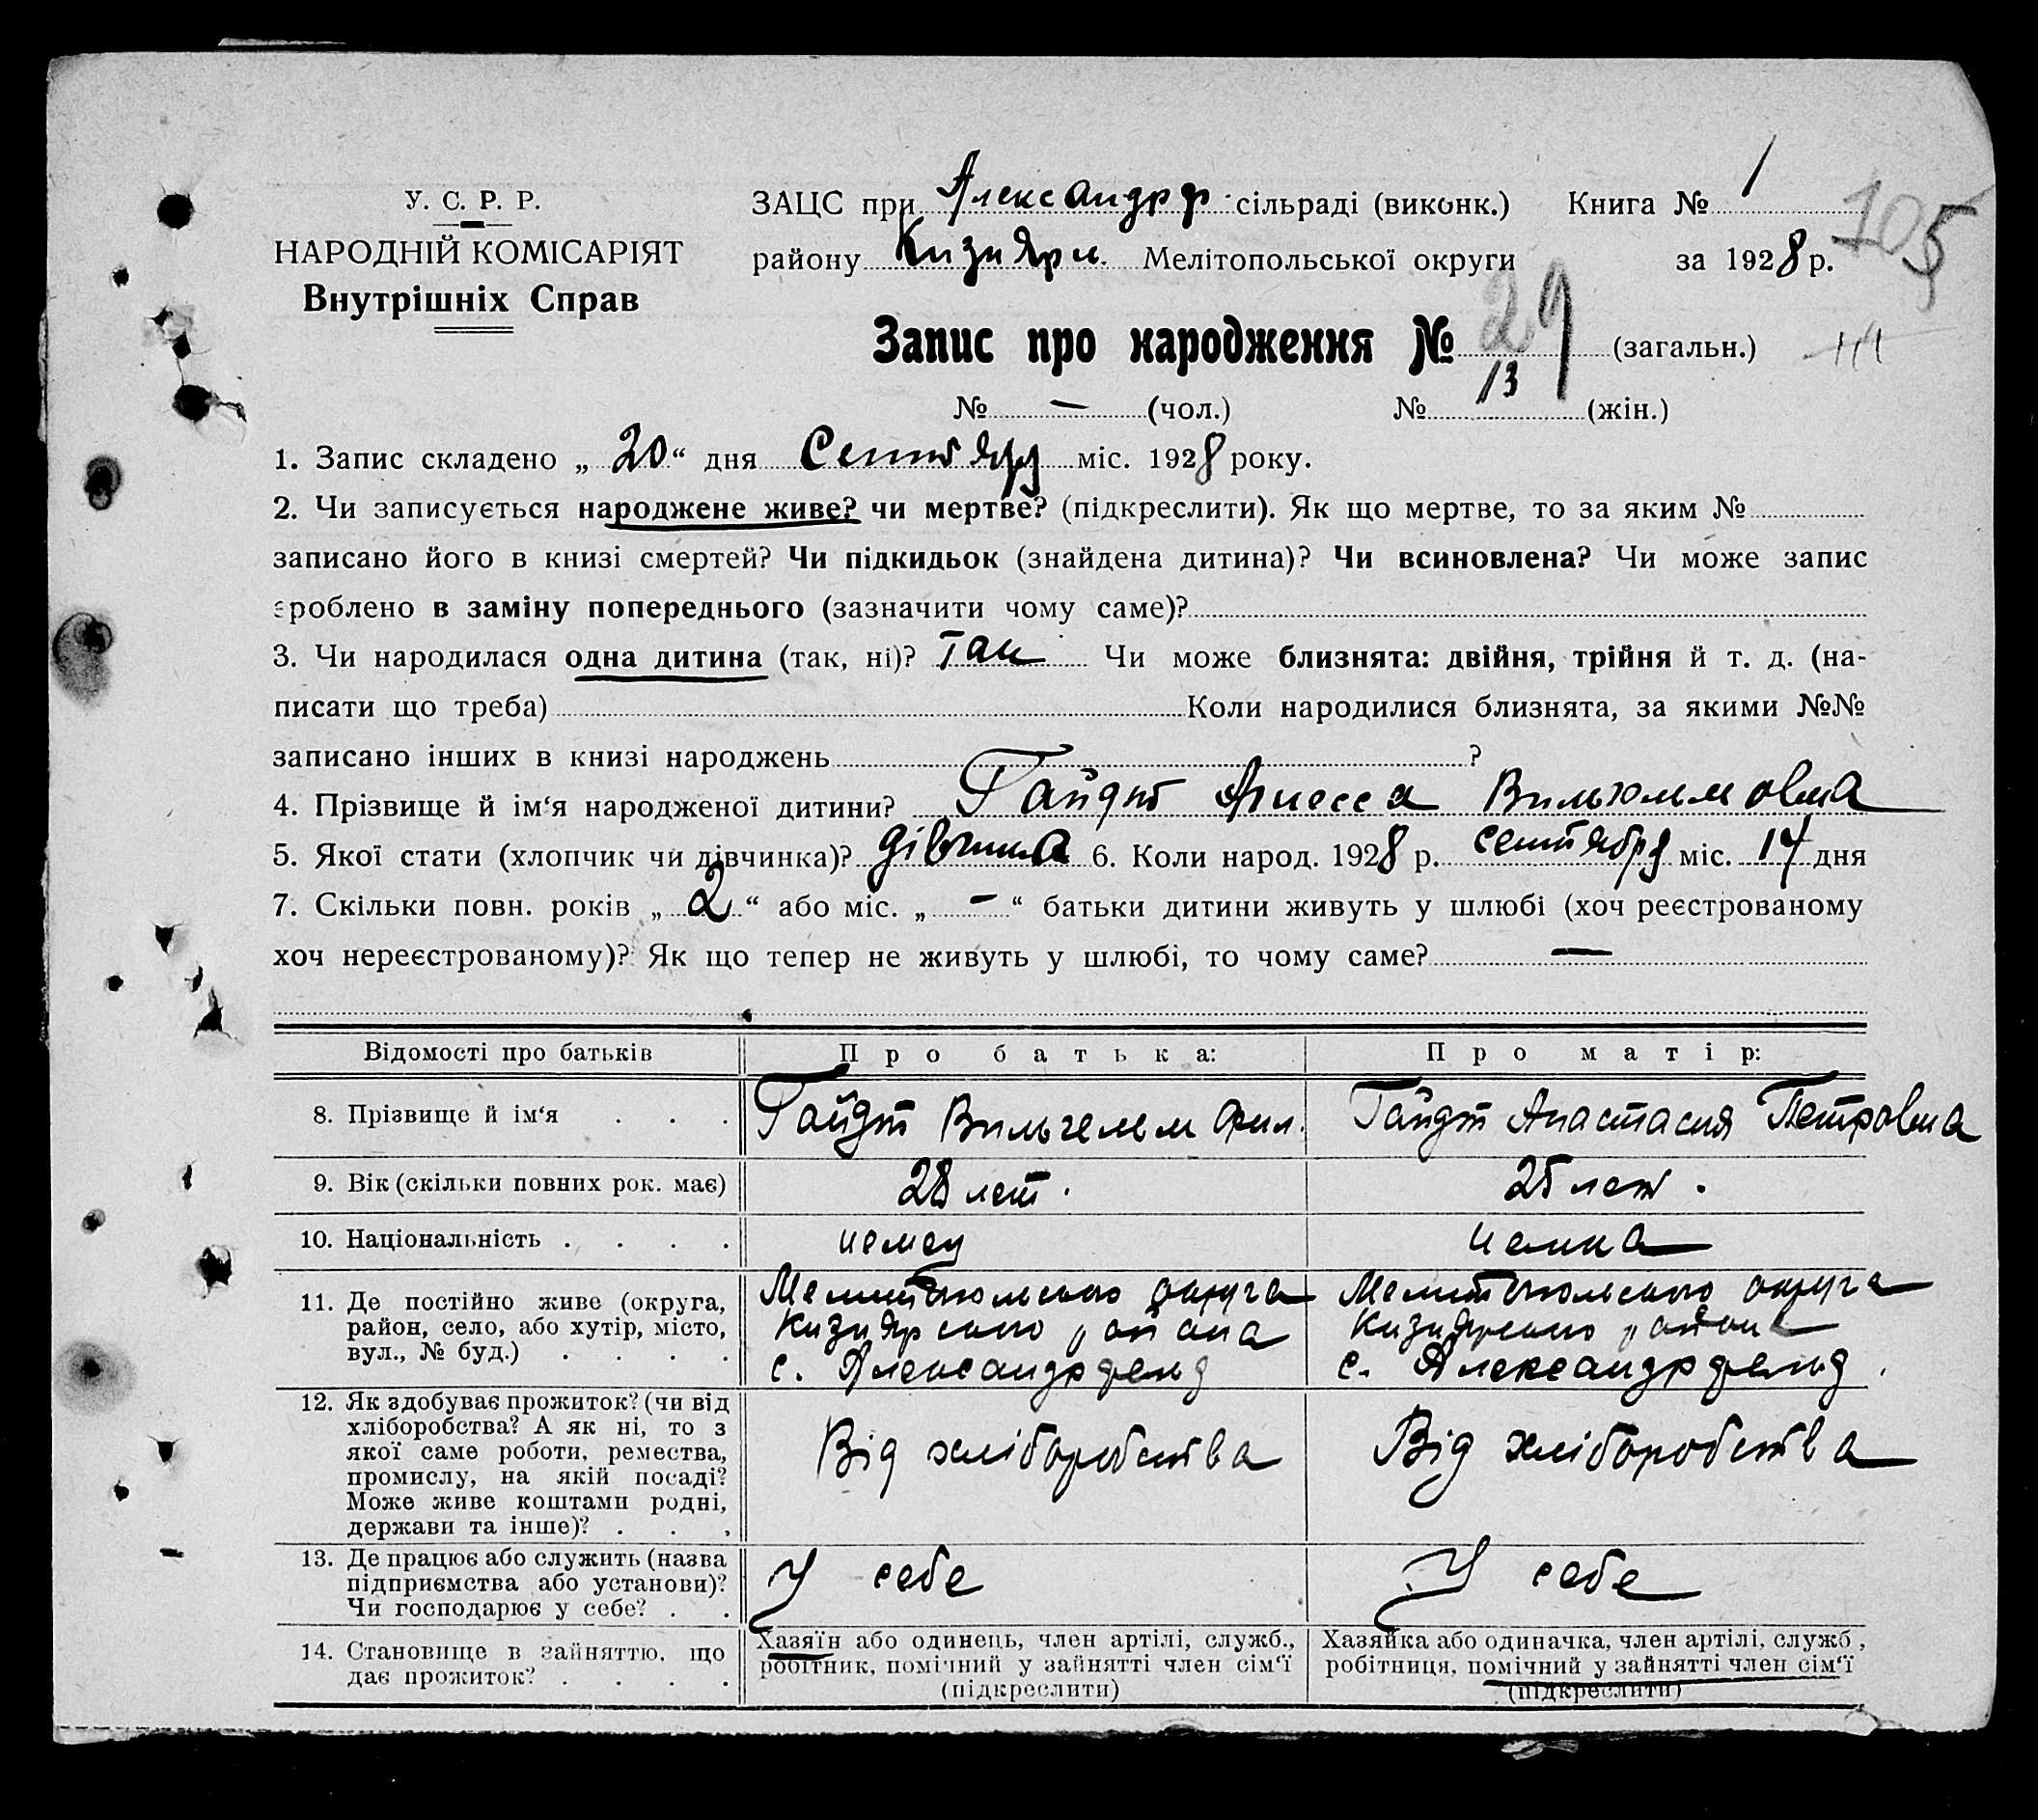 У. С. Р. Р.
НАРОДНІЙ КОМІСАРІЯТ
Внутрішніх Справ
ЗАЦС при Александрф сільраді (виконк.) Книга № 1
105
району Кизияри. Мелітопольської округи за 1928 р.
Запис про народження № 29 (загальн.)
№ — (чол.) № 13 (жін.)
1. Запис складено „ 20 “ дня Сентября міс. 1928 року.
2. Чи записується народжене живе? чи мертве? (підкреслити). Як що мертве, то за яким №
записано його в книзі смертей? Чи підкидьок (знайдена дитина)? Чи всиновлена? Чи може запис
зроблено в заміну попереднього (зазначити чому саме)?
3. Чи народилася одна дитина (так, ні)? Так Чи може близнята: двійня, трійня й т. д. (на-
писати що треба) Коли народилися близнята, за якими №№
записано інших в книзі народжень ?
4. Прізвище й ім‘я народженої дитини? Гайдт Вильгельмовна
5. Якої стати (хлопчик чи дівчинка)? дівчина 6. Коли народ. 1928 р. сентября міс. 14 дня
7. Скільки повн. років „ 2 “ або міс. „ – “ батьки дитини живуть у шлюбі (хоч реєстрованому
хоч нереєстрованому)? Як що тепер не живуть у шлюбі, то чому саме? —
Відомості про батьків Про батька: Про матір:
8. Прізвище й ім‘я . . . Гайдт Вильгельм Фил. Гайдт Анастасия Петровна
9. Вік (скільки повних рок. має) 28 лет. 25 лет.
10. Національність . . . . немец немка
11. Де постійно живе (округа, район, село, або хутір, місто, вул., № буд.) . . . .
Мелитопольского округа Кизиярского района с. Александрфельд
Мелитопольского округа Кизиярского района с. Александрфельд.
12. Як здобуває прожиток? (чи від хліборобства? А як ні, то з якої саме роботи, ремества, промислу, на якій посаді? Може живе коштами родні, держави та інше)? . . .
Від хліборобства
Від хліборобства
13. Де працює або служить (назва підприємства або установи)? Чи господарює у себе? . .
У себе
У себе
14. Становище в зайняттю, що дає прожиток? . . . .
Хазяїн або одинець, член артілі, служб., робітник, помічний у зайнятті член сім‘ї (підкреслити)
Хазяйка або одиначка, член артілі, служб., робітниця, помічний у зайнятті член сім‘ї (підкреслити)